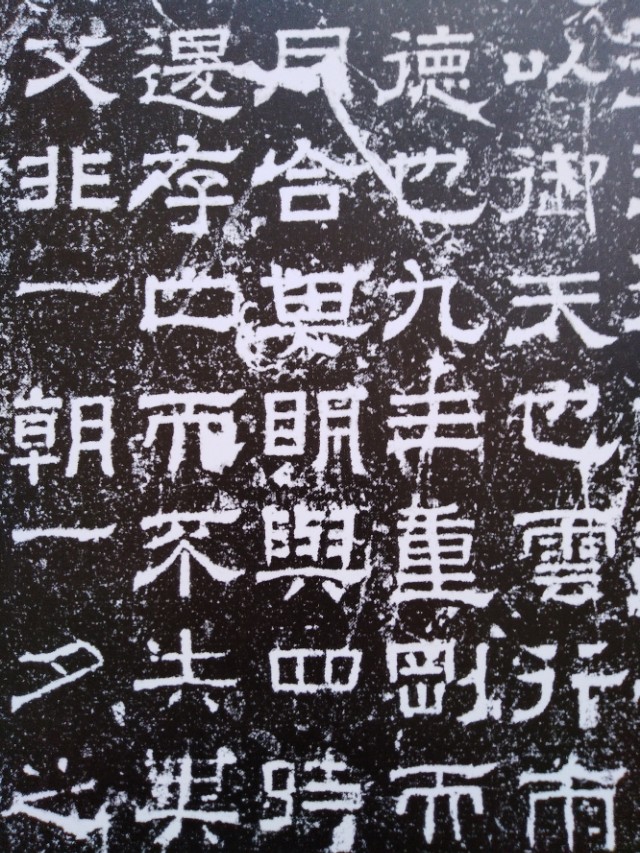 以御天也雲行雨
德也九年重剛而
月合其明與四時
退存亡而不失其
父非一朝一夕之